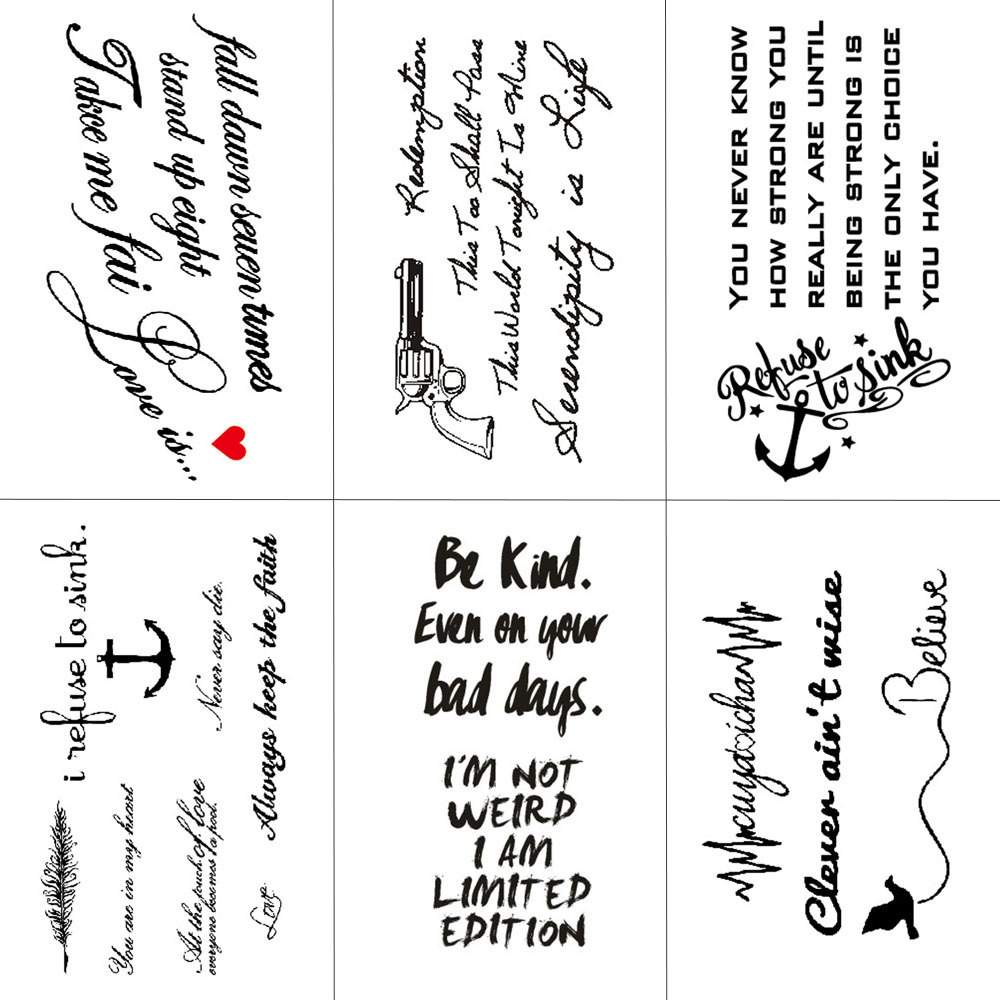 fall dawn seven times
stand up eight
Takee me fai
Love is...
Redemption
This Too Shall Pass
This World Tonight Is Mine
Serendipity is Life
YOU NEVER KNOW
HOW STRONG YOU
REALLY ARE UNTIL
BEING STRONG IS
THE ONLY CHOICE
YOU HAVE.
Refuse
to sink
i refuse to sink.
You are in my heart
Never say die.
At the touch of love
everyone becomes a poet.
Always keep the faith
Love
Be Kind.
Even on your
bad days.
I'M NOT
WEIRD
I AM
LIMITED
EDITION
Clever ain't wise
Believe